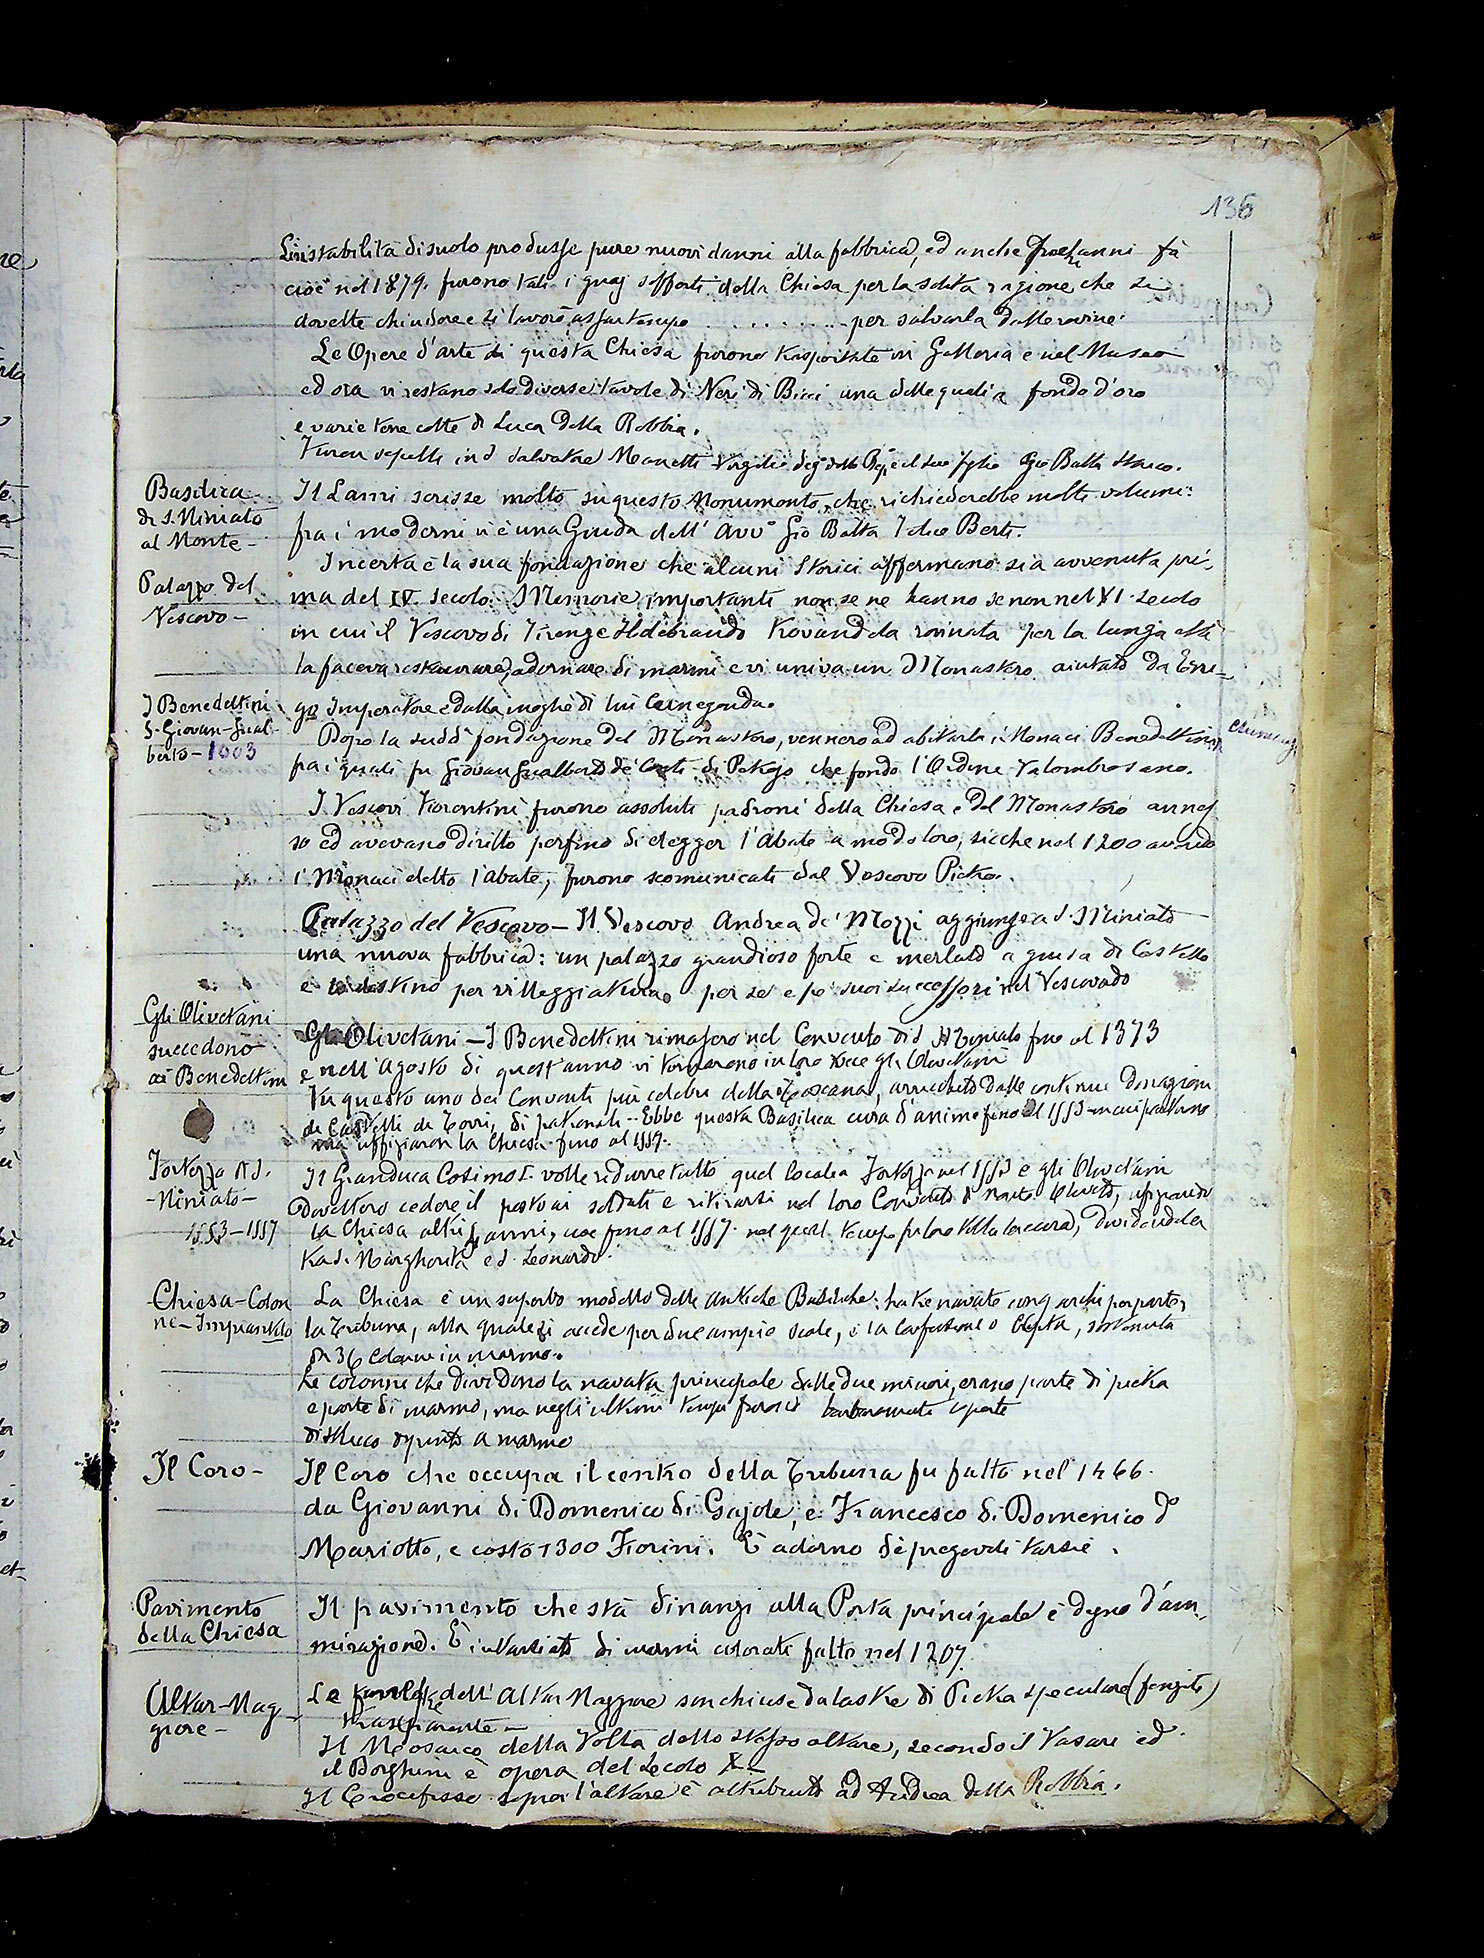 136
L'instabilità di suolo produsse pure nuovi danni alla fabbrica, ed anche pochi anni fà
cioè nel 1879. furono tali i guaj sofferti dalla Chiesa per la solita ragione che si
dovette chiudere e si lavorò assai tempo . . . . . . . . . per salvarla dalle rovine.
Le Opere d'arte di questa Chiesa furono trasportate in Galleria e nel Museo
ed ora vi restano solo diverse tavole di Neri di Bicci una delle quali a fondo d'oro
e varie terre cotte di Luca della Robbia.
Furon sepolti in S Salvatore Manetti Virgilio e il suo figlio Gio Batta Storico.
Basilica
di S. Miniato
al Monte –
Il Lami scrisse molto su questo Monumento, che richiederebbe molti volumi:
fra i moderni v'è una Guida dell' Avv° Gio Batta Felice Berti.
Palazzo del
Vescovo –
Incerta è la sua fondazione che alcuni Storici affermano sia avvenuta pri-
ma del IV. secolo. Memorie importanti non se ne hanno se non nel XI. secolo
in cui il Vescovo di Firenze Ildebrando trovandola rovinata per la lunga età
la faceva restaurare, adornare di marmi e vi univa un Monastero aiutato da Erri-
I Benedettini
S. Giovan-Gual-
berto – 1003
go Imperatore e dalla moglie di lui Cunegonda.
Dopo la sudda fondazione del Monastero, vennero ad abitarlo i Monaci Benedettini
Cluniacensi
fra i quali fu Giovan Gualberto de' Conti di Petrojo che fondò l'Ordine Valombrosano.
I Vescovi Fiorentini furono assoluti padroni della Chiesa e del Monastero annes
so ed avevano diritto perfino di elegger l'Abate a modo loro, sicche nel 1200 avendo
i Monaci eletto l'Abate, furono scomunicati dal Vescovo Pietro.
Palazzo del Vescovo – Il Vescovo Andrea de' Mozzi aggiunse a S. Miniato
una nuova fabbrica: un palazzo grandioso forte e merlato a guisa di Castello
e lo destinò per villeggiatura per se e pe' suoi successori nel Vescovado
Gli Olivetani
succedono
ai Benedettini
Gli Olivetani – I Benedettini rimasero nel Convento di S Miniato fino al 1373
e nell'Agosto di quest'anno vi tornarono in loro vece gli Olivetani
Fu questo uno dei Conventi più celebri della Toscana, arricchito dalle continue donazioni
di Castelli di Torri, di patronati – Ebbe questa Basilica cura d'anime fino al 1553
ma uffiziaron la Chiesa fino al 1557.
Fortezza di S.
-Miniato-
1553–1557
Il Granduca Cosimo I. volle ridurre tutto quel locale a Fortezza nel 1553 e gli Olivetani
dovettero cedere il posto ai soldati e ritirarsi nel loro Convento di Monte Oliveto, ufiziando
la Chiesa altri 4 anni, cioè fino al 1557. nel qual tempo fu loro tolta la cura, dividendola
tra S. Margherita e S. Leonardo.
Chiesa-Colon
ne-Impiantito
La Chiesa è un superbo modello delle antiche Basiliche: ha tre navate con 9 archi per parte,
la Tribuna, alla quale si accede per due ampie scale, e la Confessione o Cripta, sostenuta
da 36 colonne in marmo.
Le colonne che dividono la navata principale dalle due minori, erano parte di pietra
e parte di marmo, ma negli ultimi tempi furono barbaramente coperte
di stucco dipinto a marmo
Il Coro –
Il Coro che occupa il centro della Tribuna fu fatto nel 1466.
da Giovanni di Domenico di Gajole, e Francesco di Domenico d°
Mariotto, e costò 1300 Fiorini. È adorno di pregevoli tarsie.
Pavimento
della Chiesa
Il pavimento che stà dinanzi alla Porta principale è degno d'am-
mirazione. È intarsiato di marmi colorati fatto nel 1207.
Altar-Mag
giore –
Le finestre dell'Altar Maggiore son chiuse da lastre di Pietra speculare (fengite)
trasparente –
Il Mosaico della Volta dello stesso altare, secondo il Vasari ed
il Borghini è opera del secolo X –
Il Crocifisso sopra l'altare è attribuito ad Andrea della Robbia.